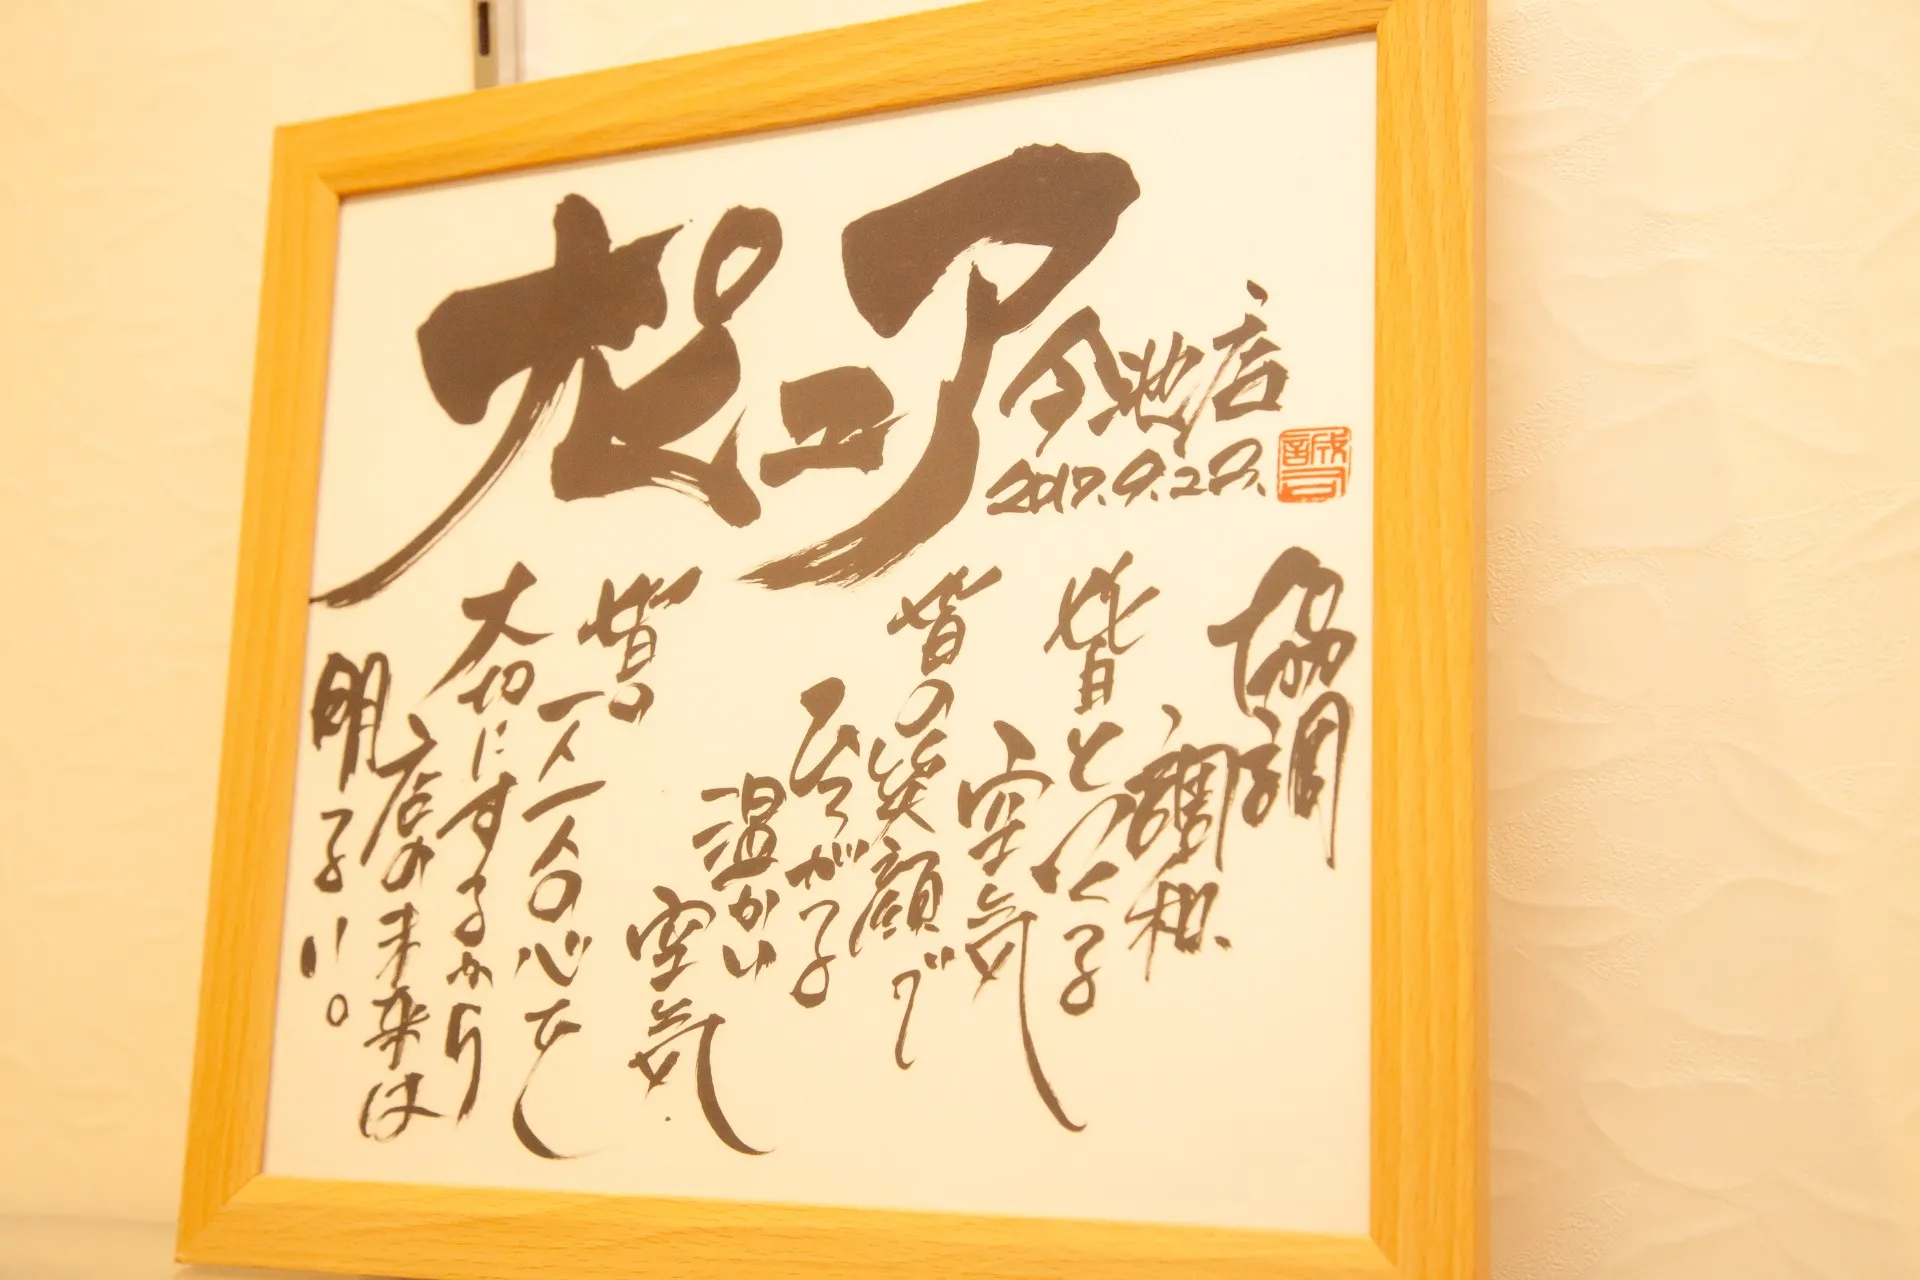 ナピュア
今池店
2017.9.27.
協調
調和。
皆とつくる
空気
皆の笑顔で
ひろがる
温かい
空気
皆の
一人一人の心を
大切にするから
店の未来は
明るい。